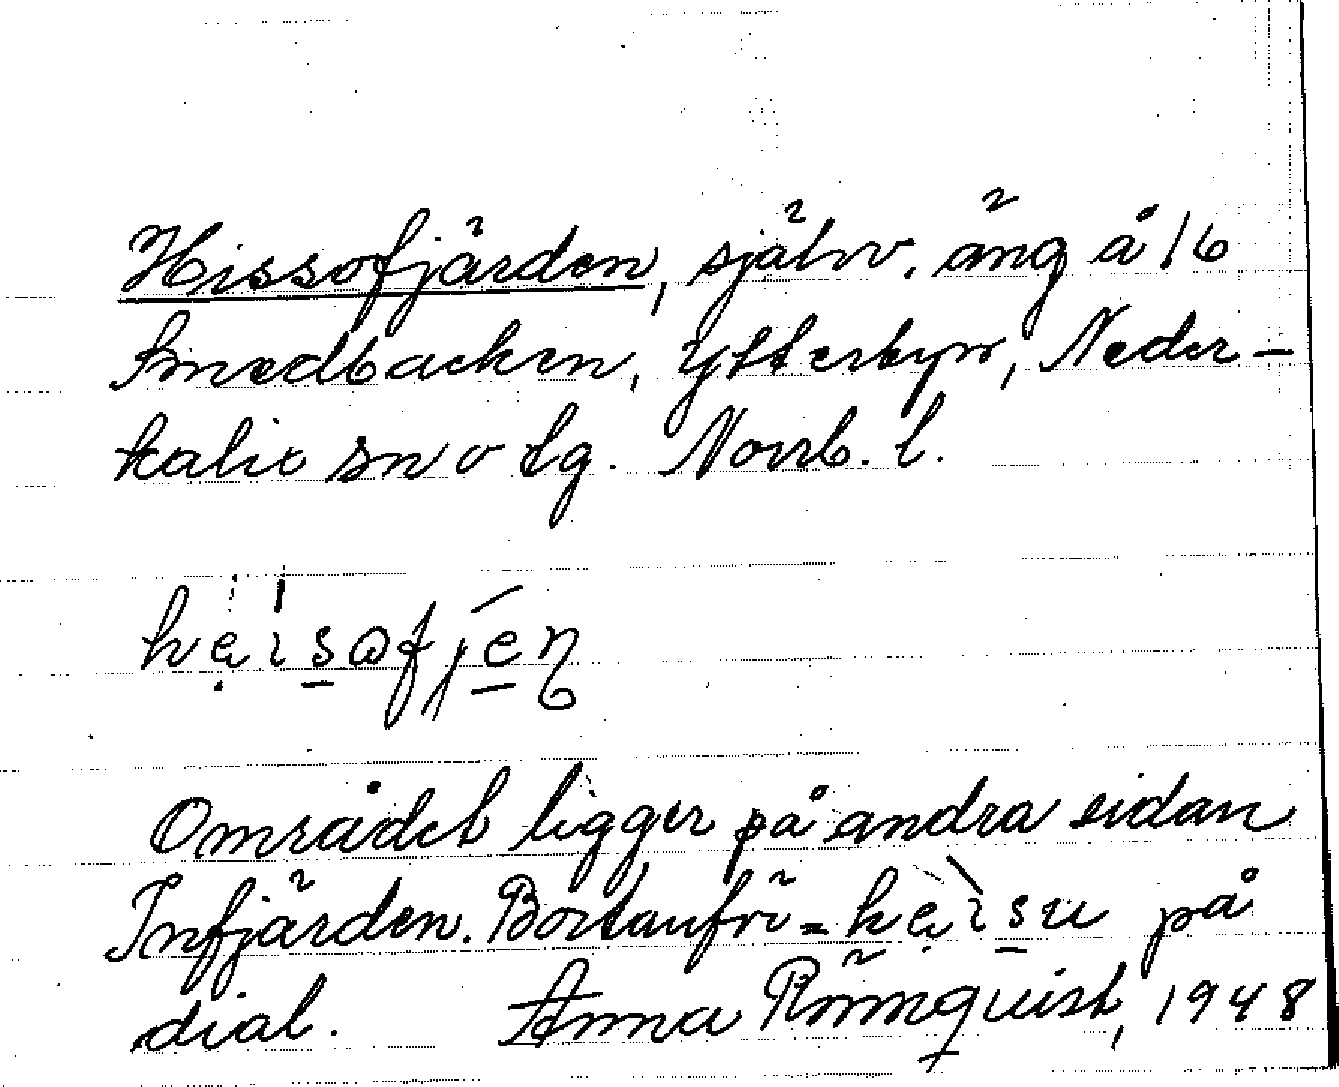 Hissofjärden, självv. äng å 16
Smedbacken, Ytterbyn, Neder-
kalix sn o tg. Norrb. l.
hẹisofjen
Området ligger på andra sidan
Infjärden. Bortanför = hẹisu på
dial. Anna Rönnquist, 1948